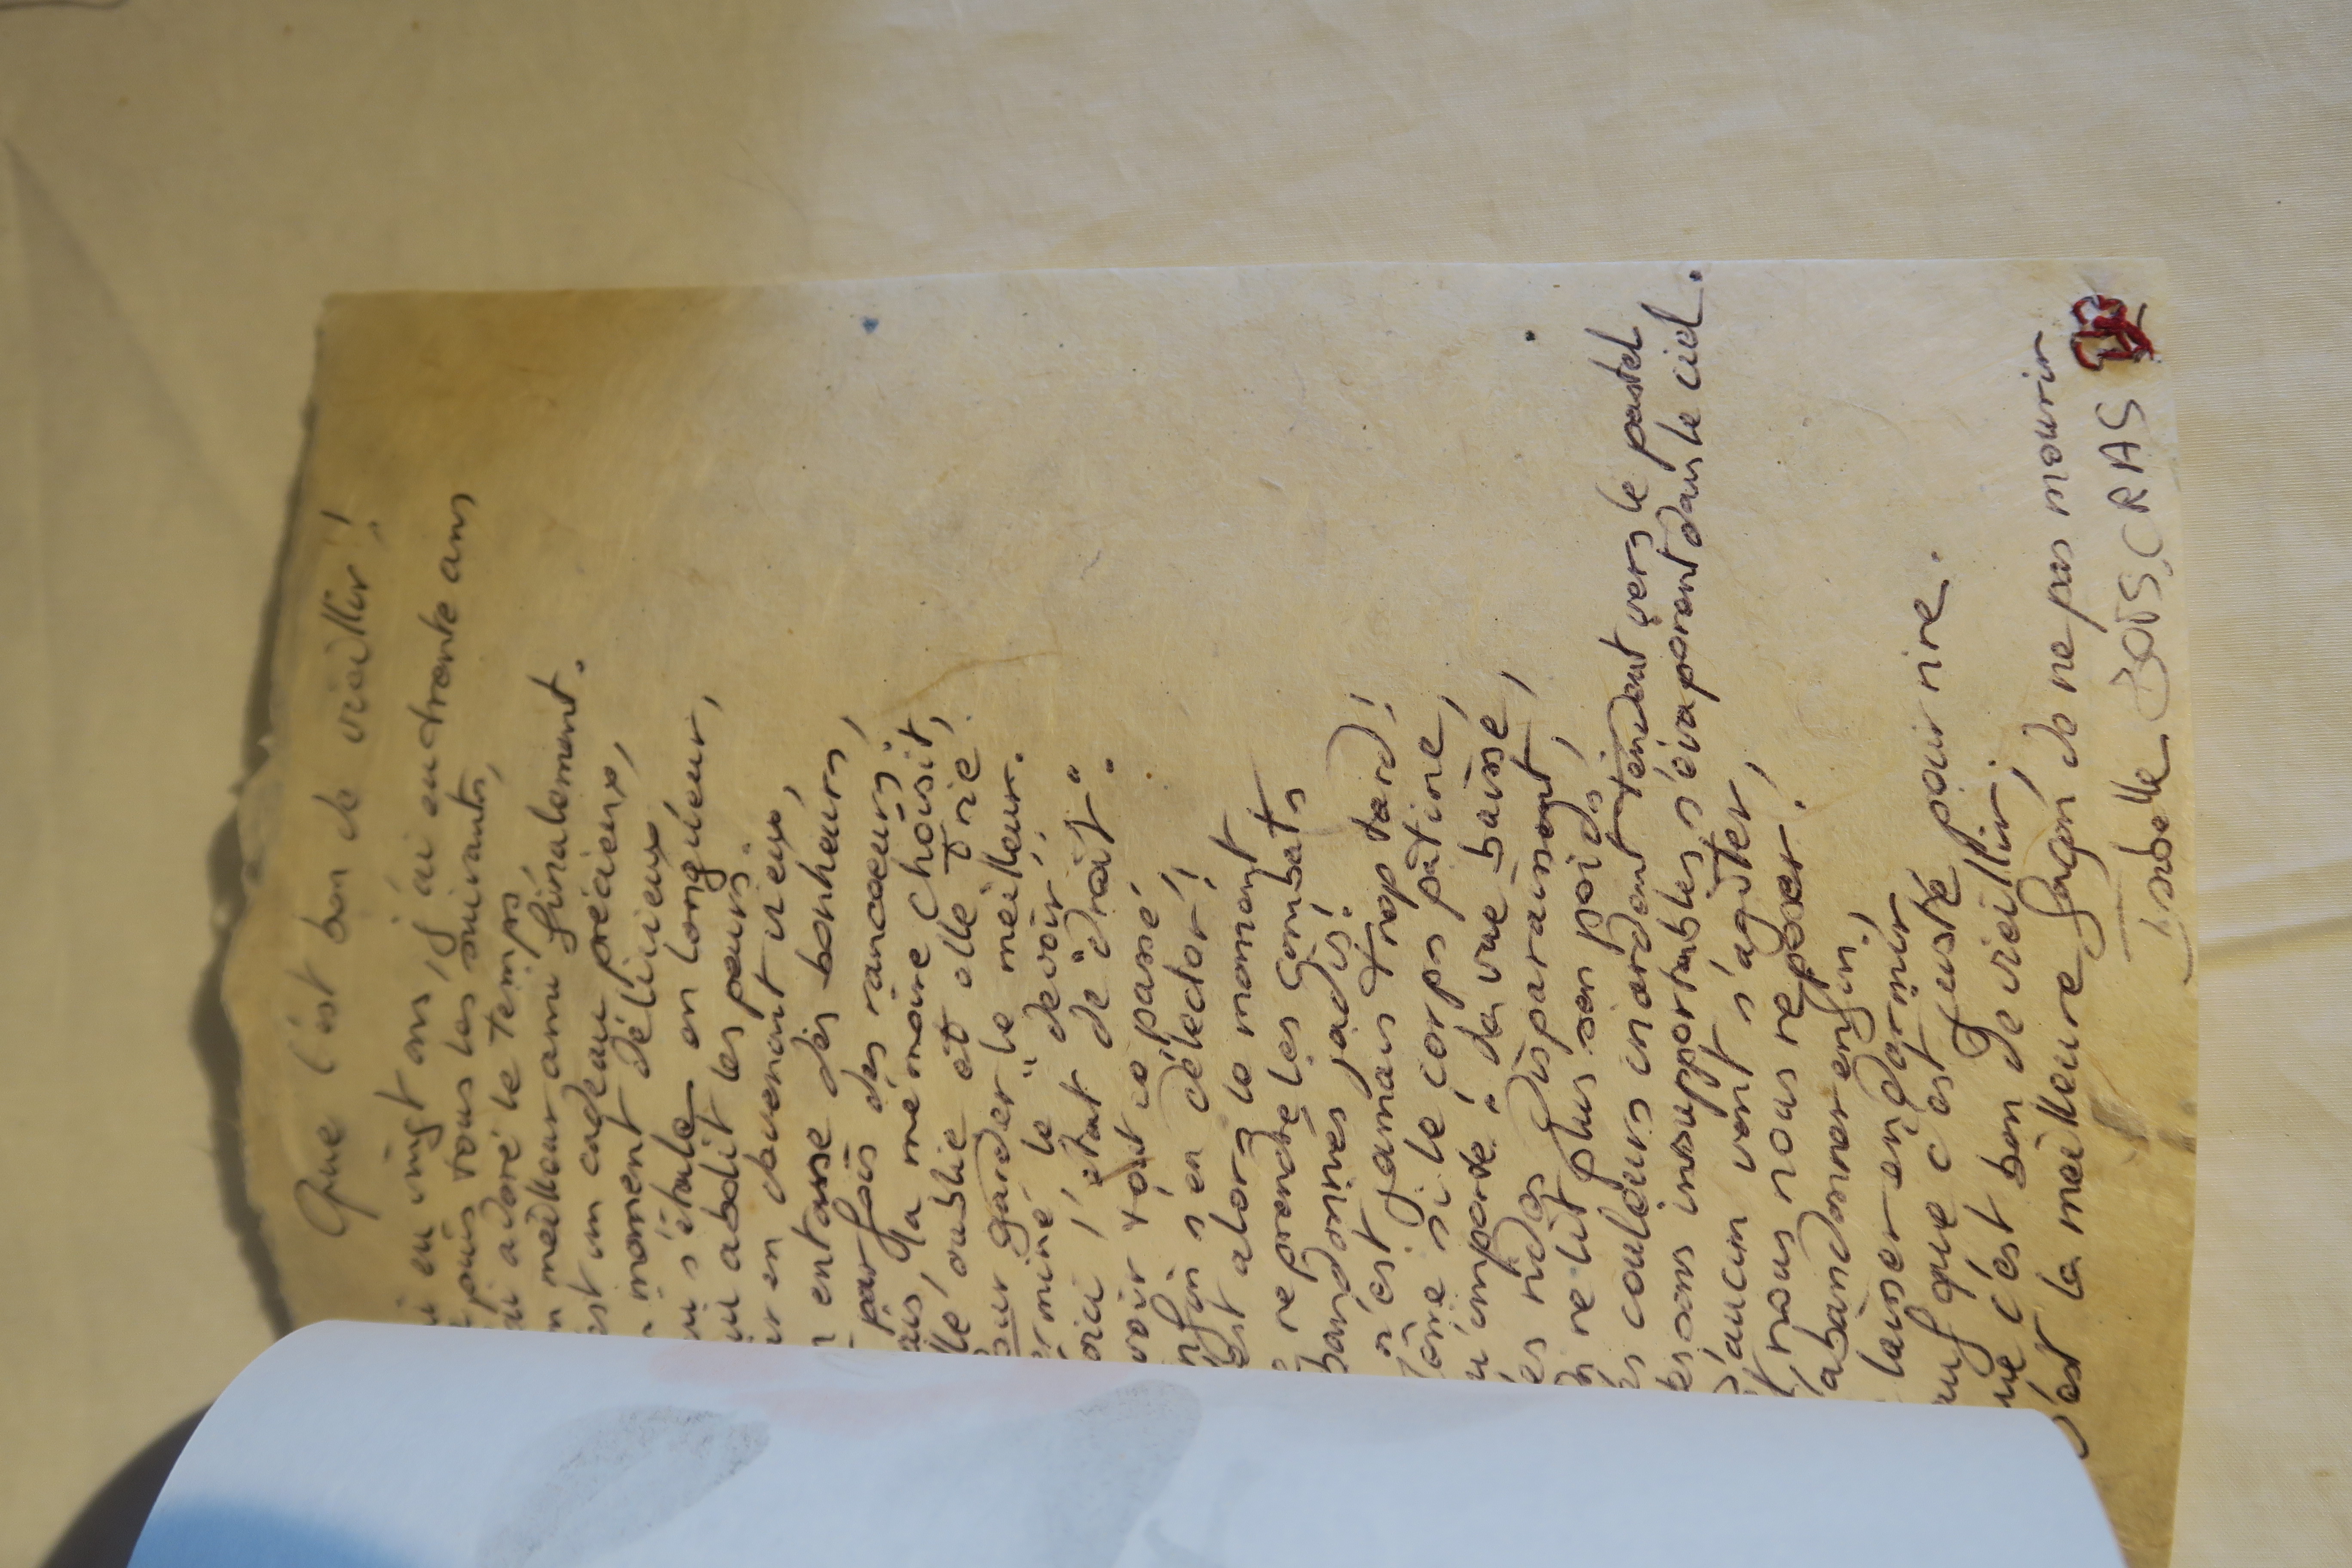 Que c'est bon de vieillir !
eu vingt ans, j'ai eu trente ans
puis tous les suivants,
adoré le temps
meilleur ami finalement.
un cadeau précieux,
moment délicieux
s'étale en longueur,
abolit les peurs.
en devenant vieux,
entasse des bonheurs,
parfois des rancoeurs ;
la mémoire choisit,
oublie et elle trie
garder le meilleur.
le "devoir",
l'état de "droit" :
tout ce passé
s'en délecter !
alors le moment
reprendre les combats
jadis !
n'est jamais trop tard !
si le corps patine,
importe "da vue baisse,
rides disparaissent,
ne lit plus son poids,
couleurs criardent tendent vers le pastel
sons insupportables s'évaporent dans le ciel.
aucun vent s'agiter,
nous nous reposer !
abandonner enfin,
laisser endormir
que c'est juste pour rire.
c'est bon de vieillir,
la meilleure façon de ne pas mourir
Isabelle BOISCRAS